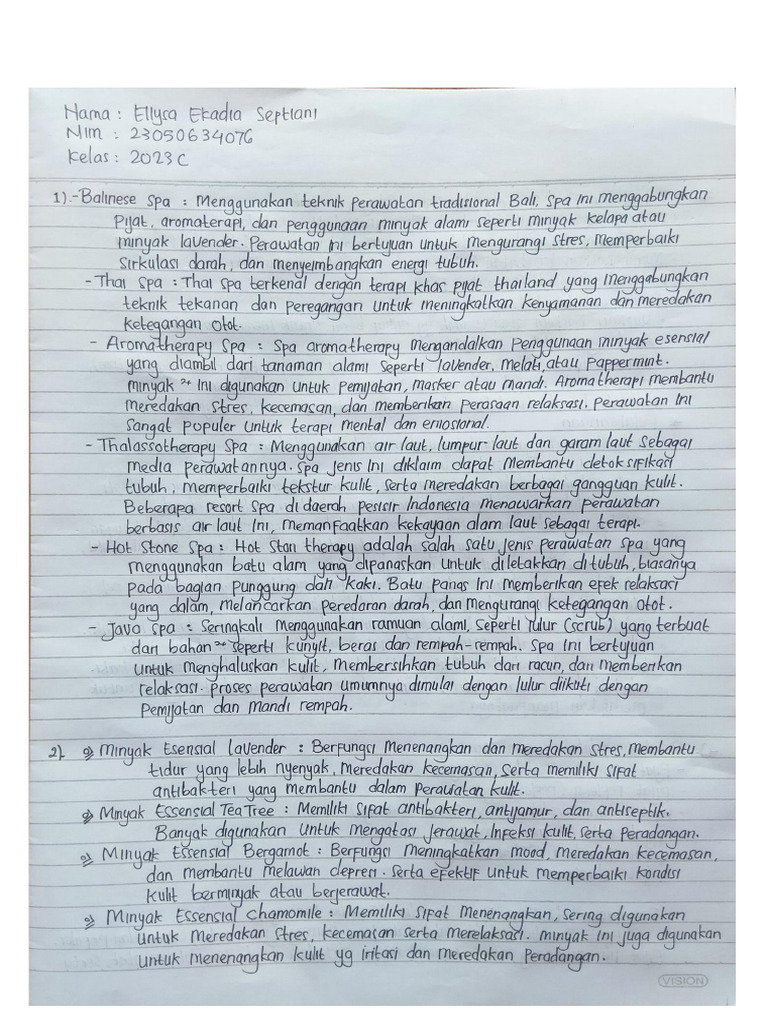 Nama : Ellysa Ekadia Septiani
Nim : 23050634076
Kelas : 2023 C
1).- Balinese Spa : Menggunakan teknik perawatan tradisional Bali, Spa ini menggabungkan
Pijat, aromaterapi, dan penggunaan minyak alami seperti minyak kelapa atau
minyak lavender. Perawatan ini bertujuan untuk mengurangi stres, memperbaiki
sirkulasi darah, dan menyeimbangkan energi tubuh.
- Thai Spa : Thai spa terkenal dengan terapi khas pijat thailand yang menggabungkan
teknik tekanan dan peregangan untuk meningkatkan kenyamanan dan meredakan
ketegangan otot.
- Aromatherapy Spa : Spa aromatherapy mengandalkan Penggunaan minyak esensial
yang diambil dari tanaman alami seperti lavender, melati, atau Pappermint.
minyak ²+ ini digunakan untuk pemijatan, masker atau mandi. Aromatherapi membantu
meredakan stres, kecemasan, dan memberikan perasaan relaksasi. Perawatan ini
sangat populer untuk terapi mental dan emosional.
- Thalassotherapy Spa : Menggunakan air laut, lumpur laut dan garam laut sebagai
media perawatannya. Spa jenis ini diklaim dapat Membantu detoksifikasi
tubuh, memperbaiki tekstur kulit, serta meredakan berbagai gangguan kulit.
Beberapa resort spa di daerah pesisir Indonesia menawarkan perawatan
berbasis air laut ini, memanfaatkan kekayaan alam laut sebagai terapi.
- Hot Stone Spa : Hot Stan therapy adalah salah satu jenis perawatan spa yang
menggunakan batu alam yang dipanaskan untuk diletakkan ditubuh, biasanya
pada bagian punggung dan kaki. Batu panas ini memberikan efek relaksasi
yang dalam, melancarkan peredaran darah, dan Mengurangi ketegangan otot.
- Java Spa : Seringkali menggunakan ramuan alami, seperti lulur (scrub) yang terbuat
dari bahan ²+ seperti kunyit, beras dan rempah-rempah. Spa ini bertujuan
untuk menghaluskan kulit, Membersihkan tubuh dari racun, dan memberikan
relaksasi. proses perawatan umumnya dimulai dengan lulur diikuti dengan
Pemijatan dan mandi rempah.
2). a) Minyak Esensial Lavender : Berfungsi Menenangkan dan meredakan stres, Membantu
tidur yang lebih nyenyak, Meredakan kecemasan, serta memiliki sifat
antibakteri yang membantu dalam perawatan kulit.
Minyak Essensial Tea Tree : Memiliki sifat antibakteri, antijamur, dan antiseptik.
Banyak digunakan Untuk Mengatasi Jerawat, Infeksi kulit, serta Peradangan.
Minyak Essensial Bergamot : Berfungsi Meningkatkan mood, meredakan kecemasan,
dan membantu melawan depresi. serta efektif untuk memperbaiki kondisi
kulit berminyak atau berjerawat.
Minyak Essensial Chamomile : Memiliki sifat Menenangkan, sering digunakan
untuk Meredakan stres, kecemasan serta merelaksasi. minyak ini juga digunakan
untuk menenangkan kulit yg iritasi dan meredakan Peradangan.
VISION